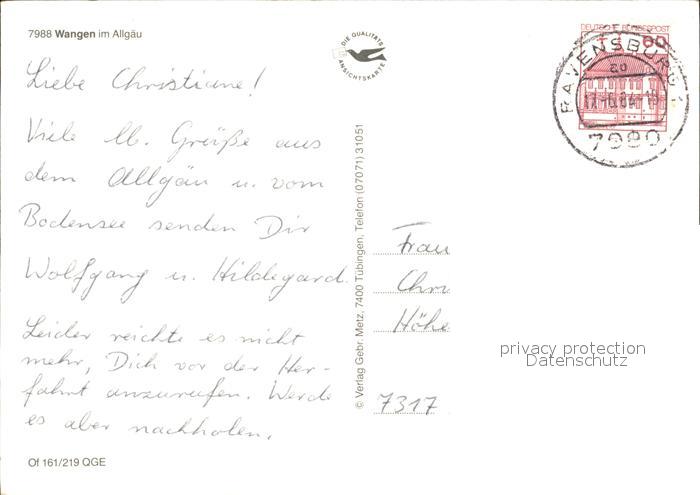 7988 Wangen im Allgäu
DIE QUALITÄTS
ANSICHTSKARTE
DEUTSCHE BUNDESPOST
60
RAVENSBURG 1
ao
7980
Liebe Christiane!
Viele lb. Grüße aus
dem Allgäu u. vom
Bodensee senden Dir
Wolfgang u. Hildegard.
Leider reichte es nicht
mehr, Dich vor der Her-
fahrt anzurufen. Werde
es aber nachholen.
Of 161/219 QGE
© Verlag Gebr. Metz, 7400 Tübingen, Telefon (07071) 31051
Frau
Chri
Höhe
7317
privacy protection
Datenschutz